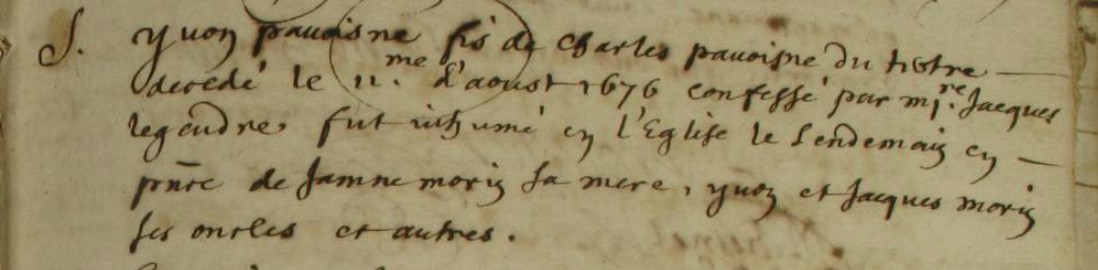 S. yvon pavoisne fis de Charles pavoisne du tertre
decedé le 11.me d'aoust 1676 confessé par mre. Jacques
legendre, fut inhumé en l'Eglise le lendemain en
pnce de Jamne morin sa mere, yvon et Jacques morin
ses oncles et autres.